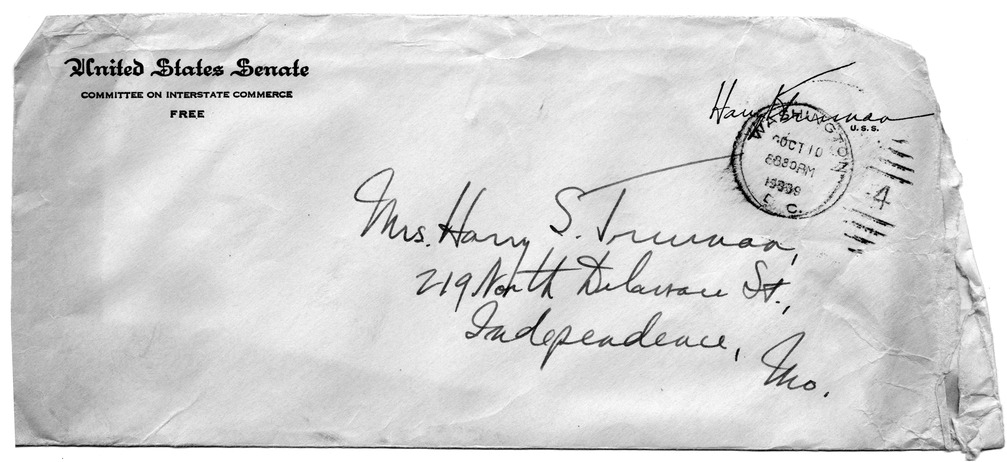 United States Senate
COMMITTEE ON INTERSTATE COMMERCE
FREE
Harry S Truman
U.S.S.
WASHINGTON
OCT 10
1939
D. C.
4
Mrs. Harry S. Truman,
219 North Delaware St.,
Independence,
Mo.